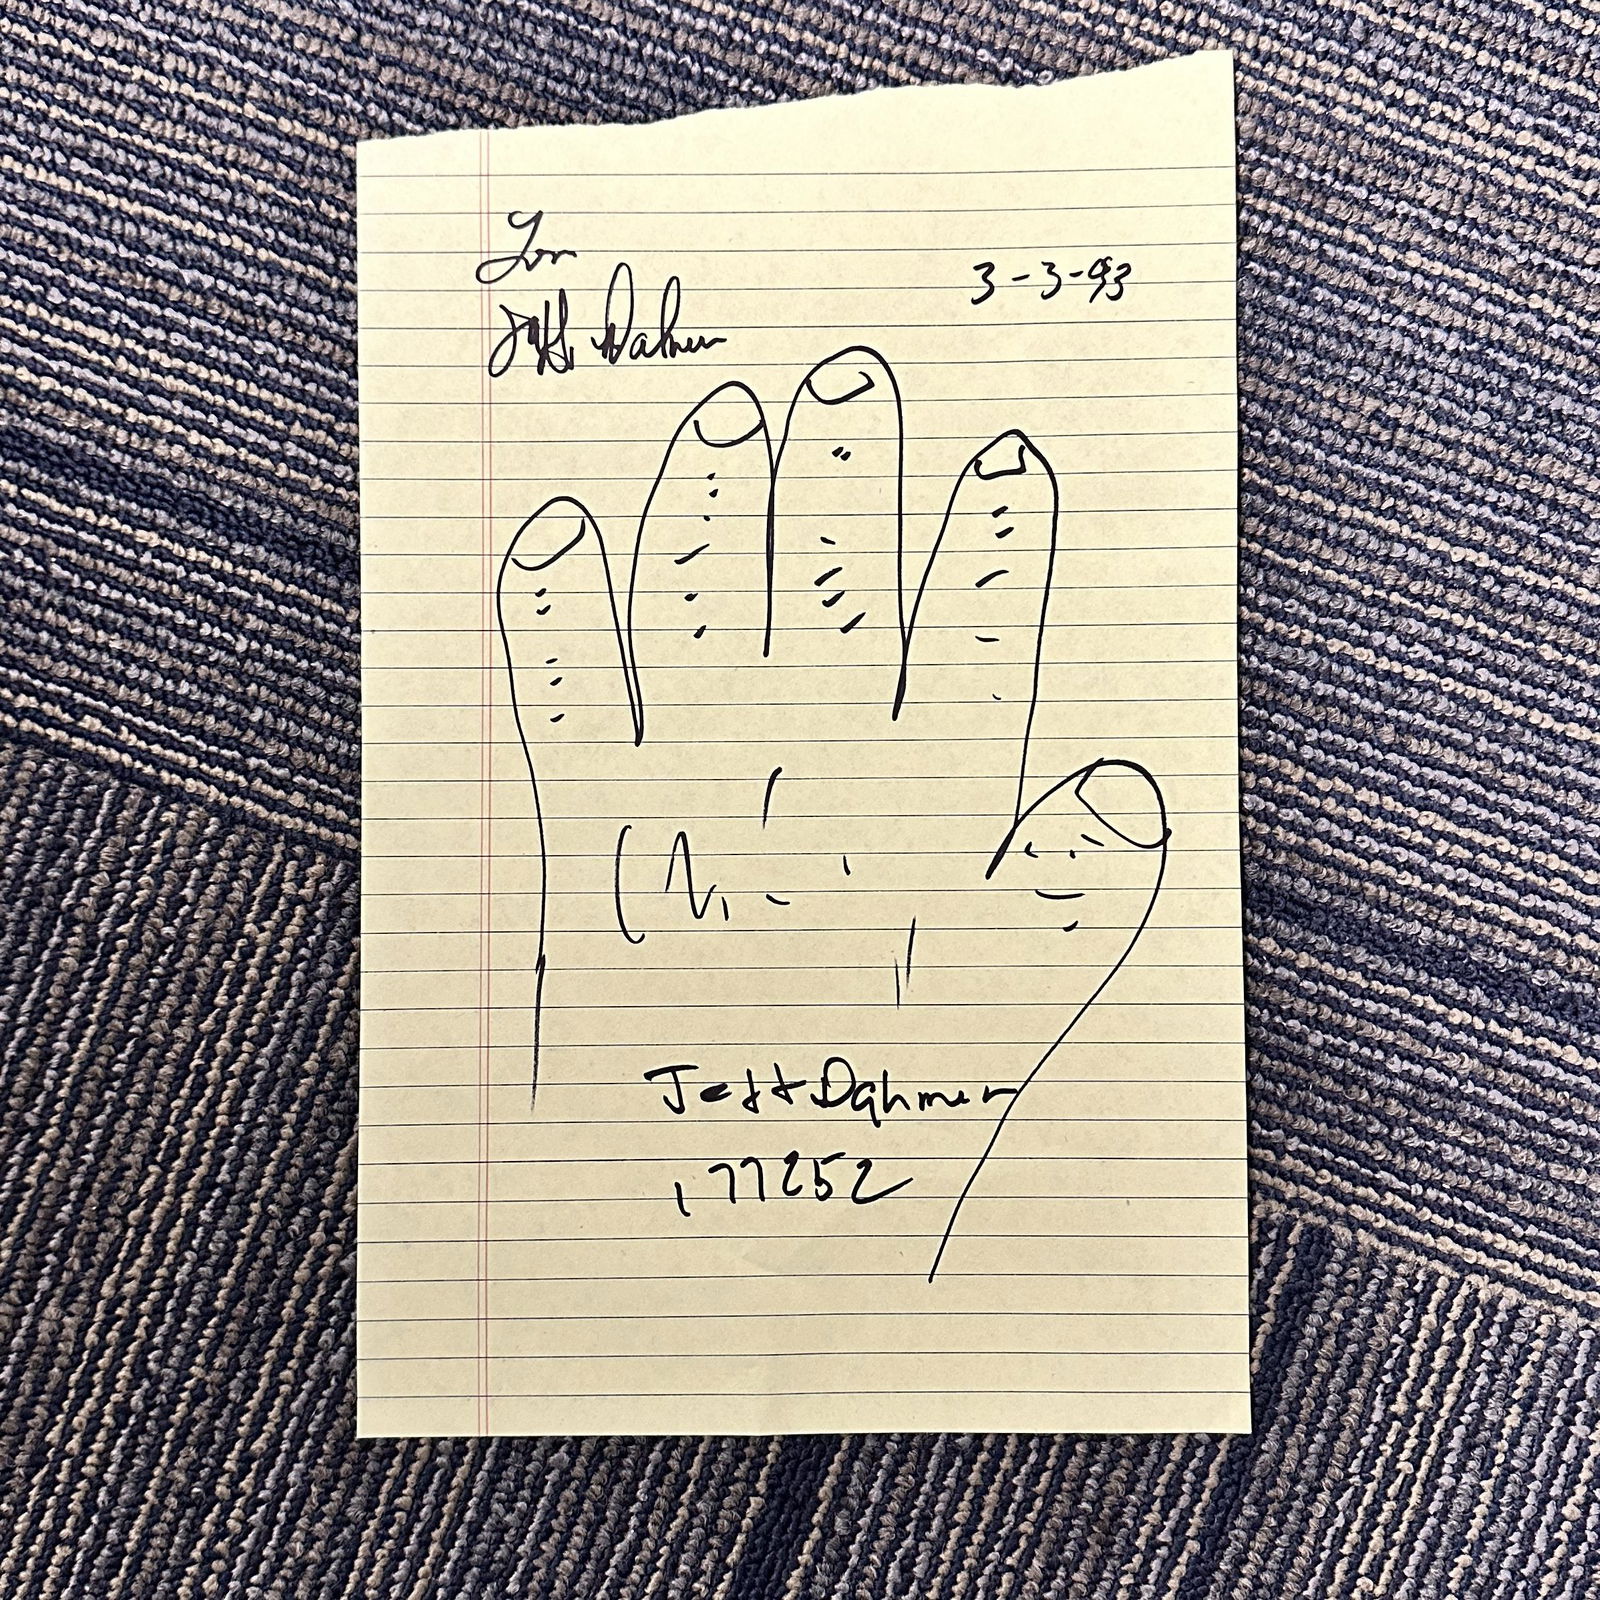 3-3-93
Jeff Dahmer
Jeff Dahmer
177252